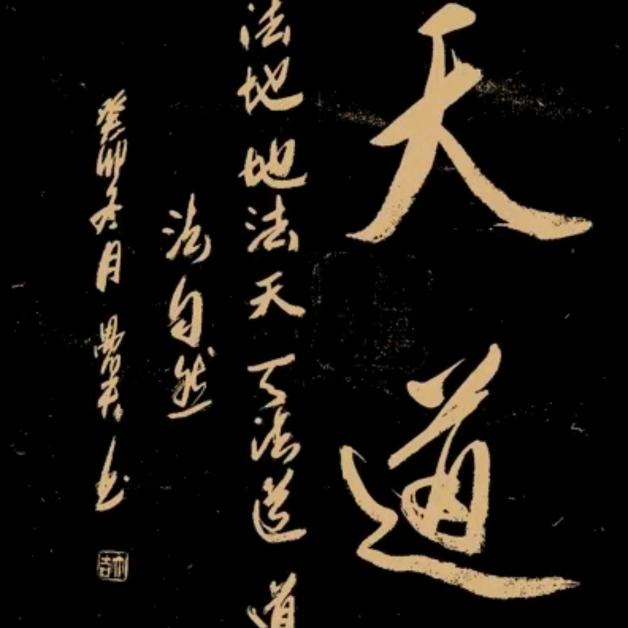 天道
法地地法天天法道道
法自然
癸卯冬月
书